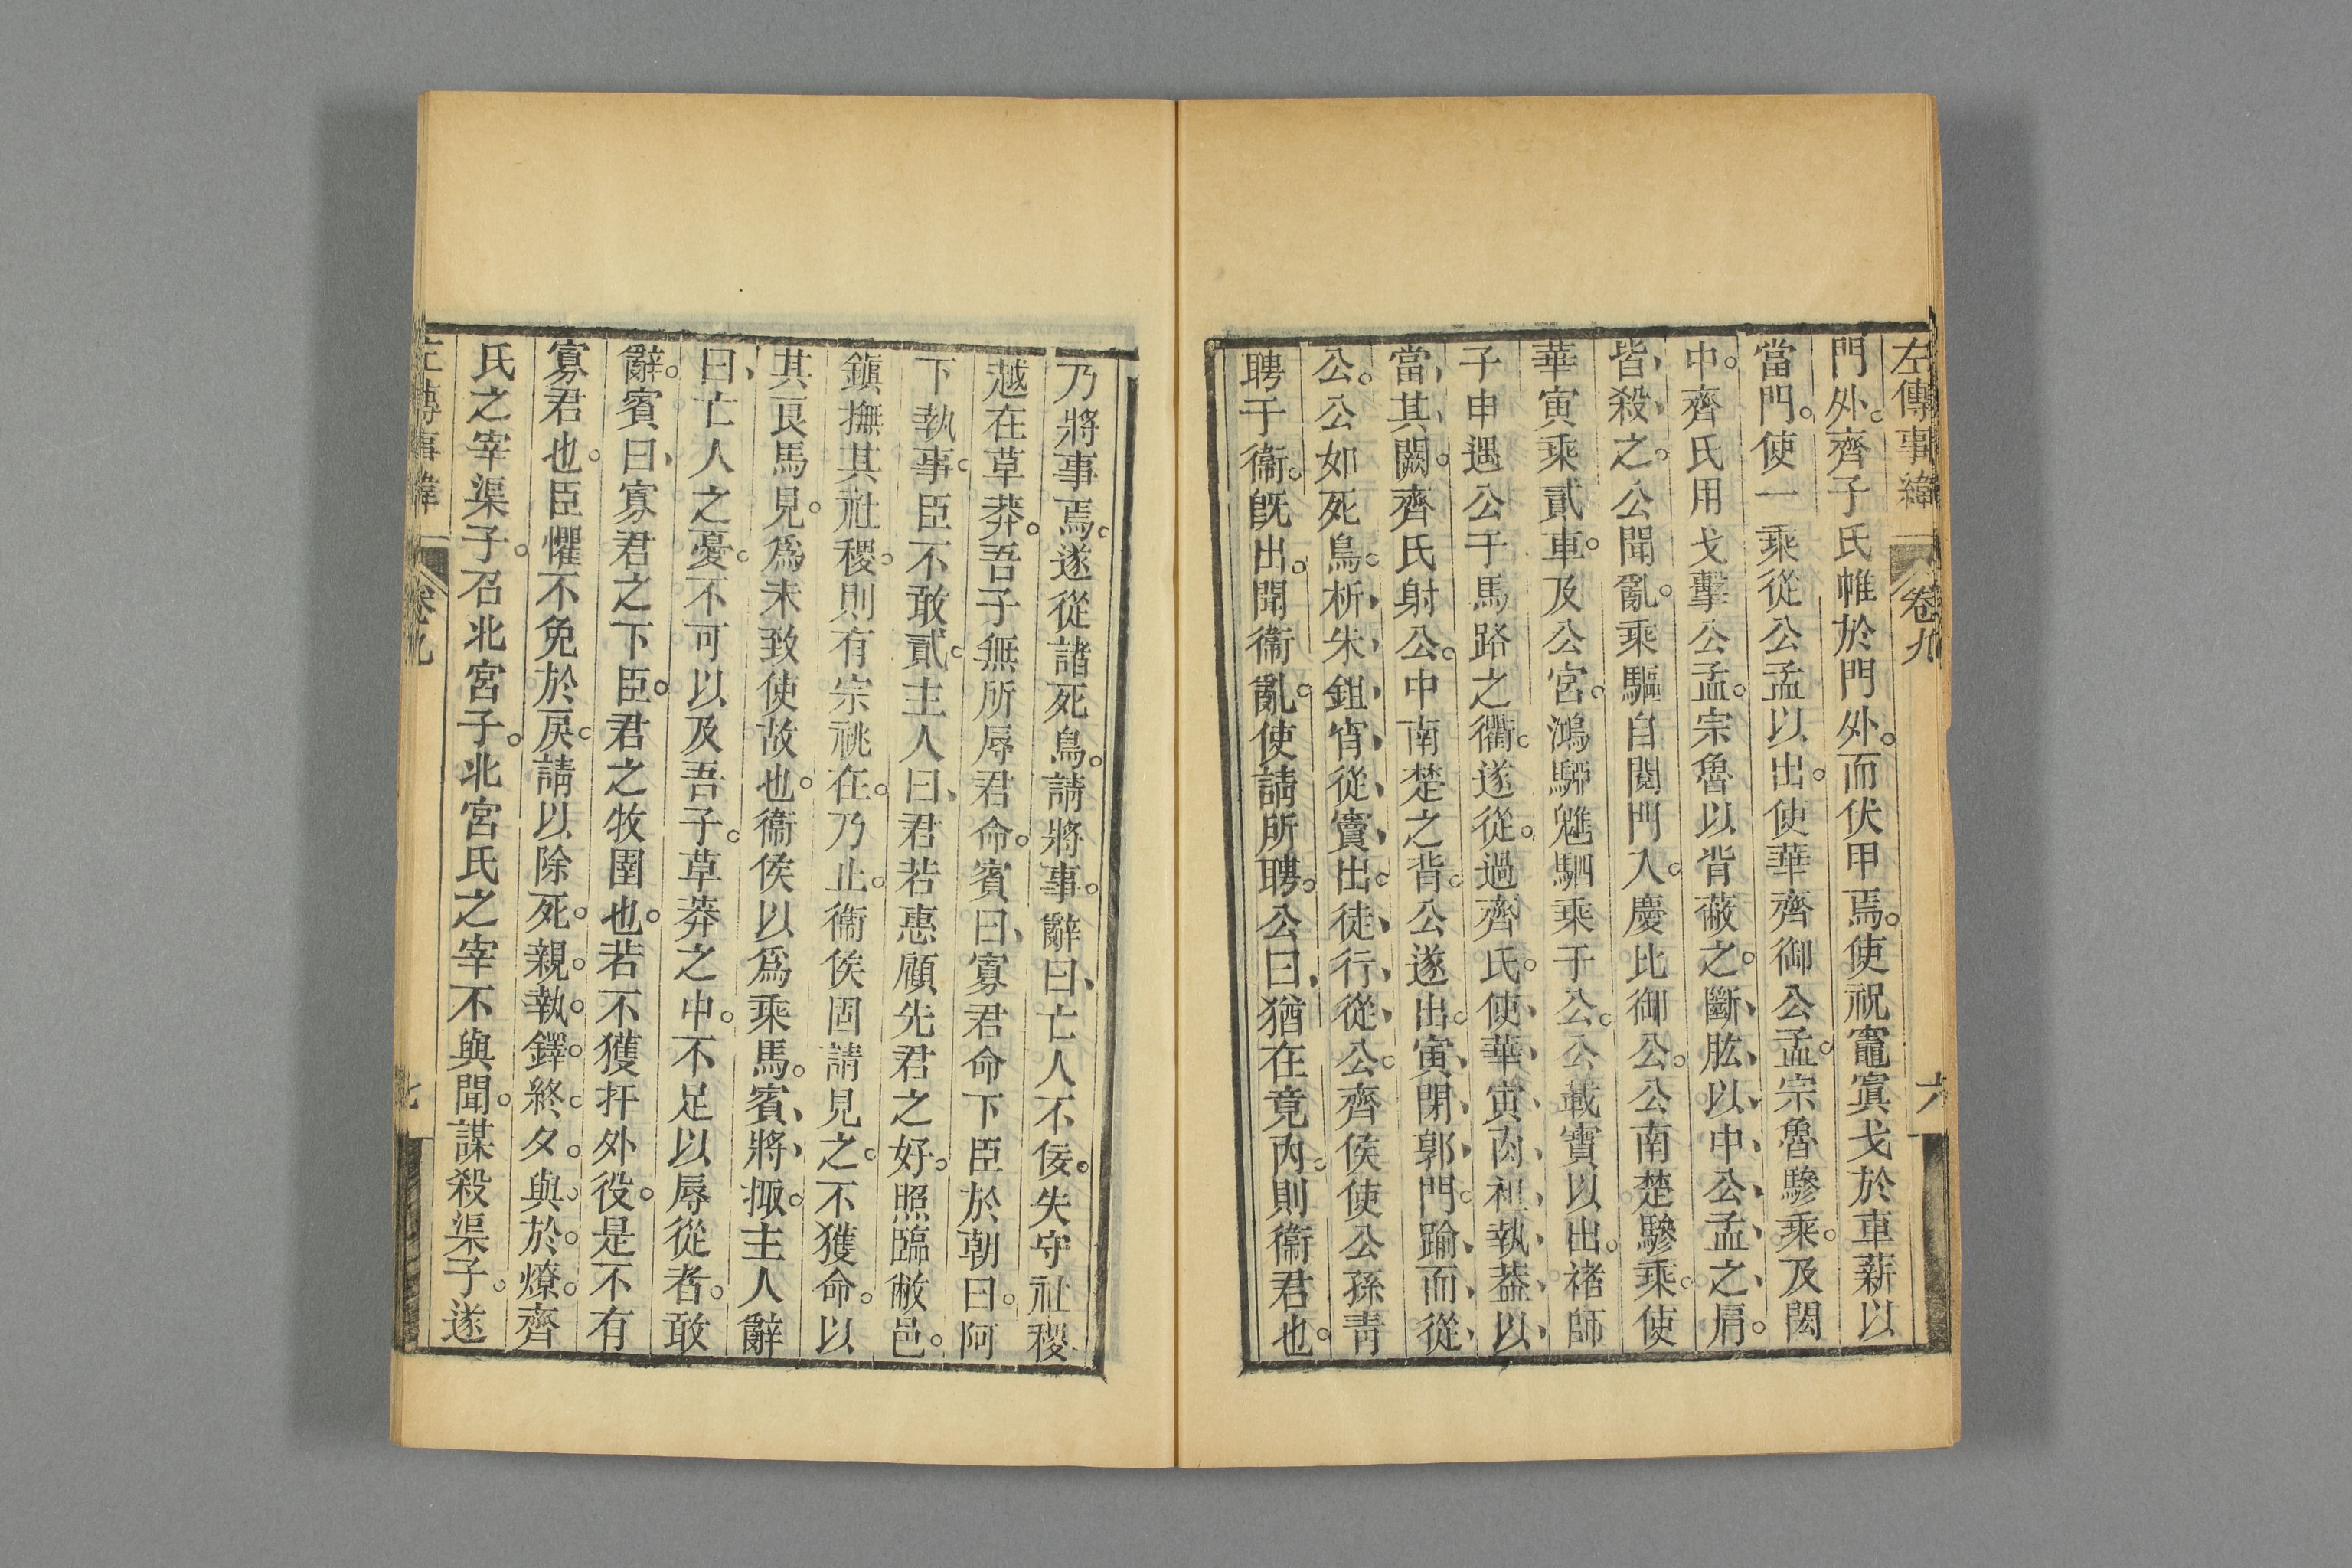 左傳事緯 卷九 六
門外。齊子氏帷於門外。而伏甲焉。使祝鼃寘戈於車薪以
當門。使一乘從公孟以出。使華齊御公孟。宗魯驂乘。及閎
中。齊氏用戈擊公孟。宗魯以背蔽之。斷肱、以中公孟之肩。
皆殺之。公聞亂。乘驅自閱門入。慶比御公。公南楚驂乘。使
華寅乘貳車。及公宮。鴻駵魋駟乘于公。公載寶以出。褚師
子申遇公于馬路之衢。遂從。過齊氏。使華寅肉袒執葢以
當其闕。齊氏射公。中南楚之背。公遂出。寅閉郭門。踰而從
公。公如死鳥。析朱鉏宵從竇出。徒行從公。齊侯使公孫靑
聘于衞。旣出。聞衞亂。使請所聘。公曰、猶在竟內。則衞君也。
乃將事焉。遂從諸死鳥。請將事。辭曰、亡人不佞。失守社稷
越在草莽。吾子無所辱君命。賓曰、寡君命下臣於朝曰。阿
下執事。臣不敢貳。主人曰、君若惠顧先君之好。照臨敝邑。
鎭撫其社稷。則有宗祧在。乃止。衞侯固請見之。不獲命。以
其良馬見。爲未致使故也。衞侯以爲乘馬。賓將掫。主人辭
曰、亡人之憂。不可以及吾子。草莽之中。不足以辱從者。敢
辭。賓曰、寡君之下臣。君之牧圉也。若不獲扞外役。是不有
寡君也。臣懼不免於戾。請以除死。親執鐸。終夕與於燎。齊
氏之宰渠子。召北宮子。北宮氏之宰不與聞。謀殺渠子。遂
左傳事緯 卷九 七